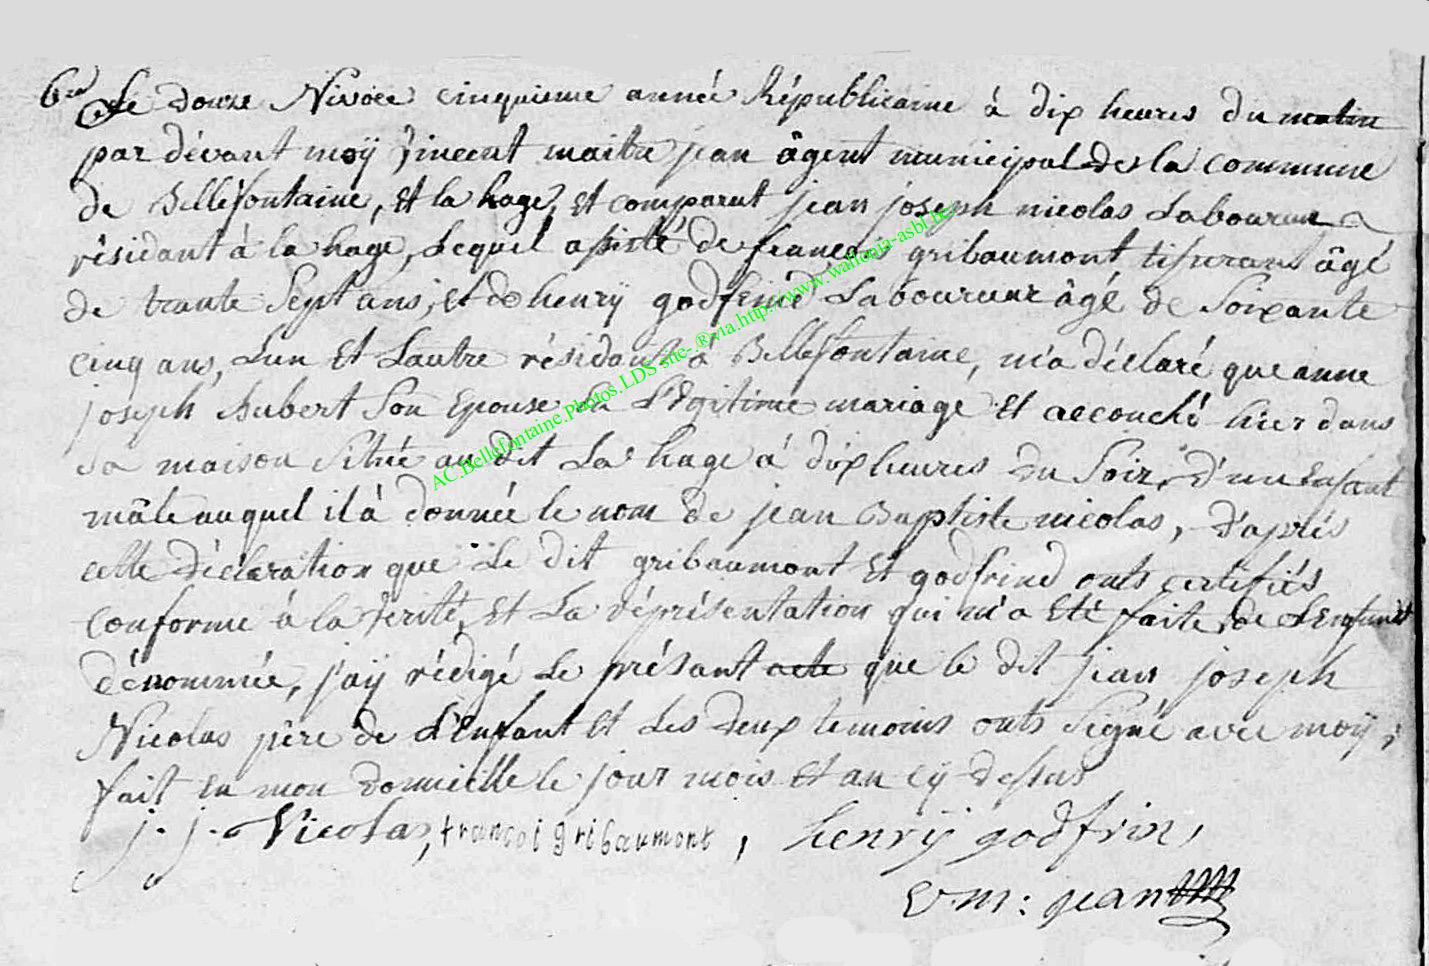 6me Le douze Nivose cinquieme année Républicaine à dix heures du matin
par dévant moÿ Vincent maitre jean âgent municipal de la commune
de Bellefontaine, et la hage, et comparut jean joseph nicolas Laboureur
résidant à la hage, Lequel assisté de françois gribaumont tisserant âgé
de trante Sept ans, et de henrÿ godfrind Laboureur âgé de Soixante
cinq ans, L'un et Lautre résidants à Bellefontaine, m'a déclaré que anne
joseph hubert Son Epouse En L'Egitime mariage Et accouché hier dans
sa maison Situé au dit La hage à dix heures du Soir, d'un Enfant
mâle auquel il à donnée le nom de jean Baptiste nicolas, d'après
cette déclaration que Le dit gribaumont Et godfrind onts certifiés
conforme à la vérité, et La répréséntation qui m'a Eté faite, de L'Enfant
dénommée, j'aÿ rédigé Le présant acte que le dit jean joseph
Nicolas père de L'Enfant Et Les deux temoins onts Signé avec moÿ,
fait En mon domicille le jour mois Et an cÿ-dessus
j. j. Nicolas, françoi gribaumont, henrÿ godfrin,
V. m: jean
AC.Bellefontaine.Photos.LDS site-®via.http://www.wallonia-asbl.be/